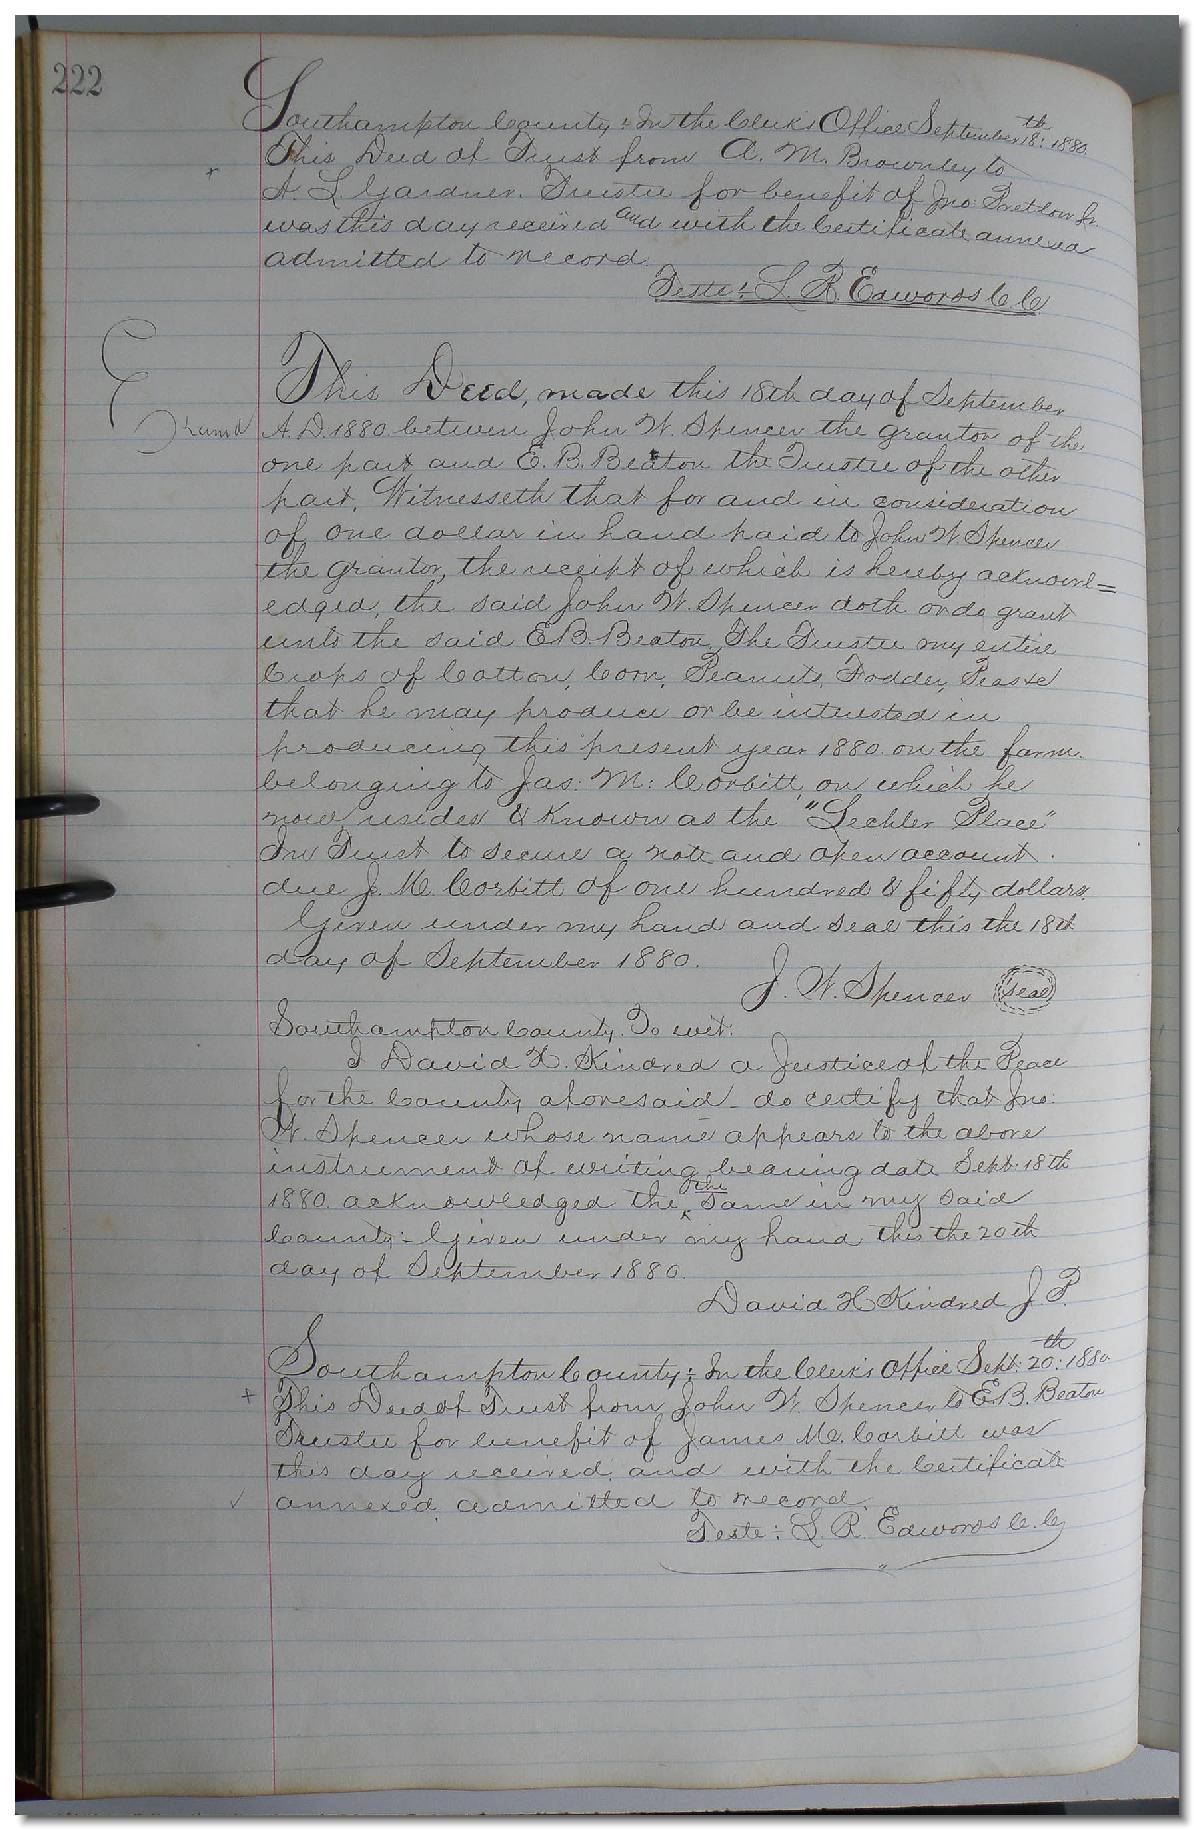 222
Southampton County: In the Clerk's Office September 18th: 1880.
This Deed of Trust from A. M. Brownley to
A. L. Gardner. Trustee for benefit of Jno: Pretlow Jr.
was this day received and with the Certificate annexed
admitted to record
Teste: L. R. Edwards C. C.
This Deed, made this 18th day of September
A. D. 1880 between John W. Spencer the grantor of the
one part and E. B. Beaton the Trustee of the other
part, Witnesseth that for and in consideration
of one dollar in hand paid to John W. Spencer
the grantor, the receipt of which is hereby acknowl=
edged, the said John W. Spencer doth or do grant
unto the said E. B. Beaton, The Trustee my entire
Crops of Cotton, Corn, Peanuts, Fodder, Peas &c
that he may produce or be interested in
producing this present year 1880 on the farm
belonging to Jas: M: Corbitt, on which he
now resides & Known as the "Lechler Place"
In Trust to secure a note and open account
due J. M. Corbitt of one hundred & fifty dollars.
Given under my hand and seal this the 18th
day of September 1880.
J. W. Spencer seal
Southampton County. To wit:
I David H. Kindred a Justice of the Peace
for the County aforesaid do certify that Jno:
W. Spencer whose name appears to the above
instrument of writing bearing date Sept. 18th
1880. acknowledged the the same in my said
County: Given under my hand this the 20th
day of September 1880.
David H Kindred J P.
Southampton County: In the Clerk's Office Sept: 20th: 1880
This Deed of Trust from John W. Spencer to E. B. Beaton
Trustee for benefit of James M. Corbitt was
this day received, and with the Certificate
annexed, admitted to record.
Teste: L R. Edwards C. C.